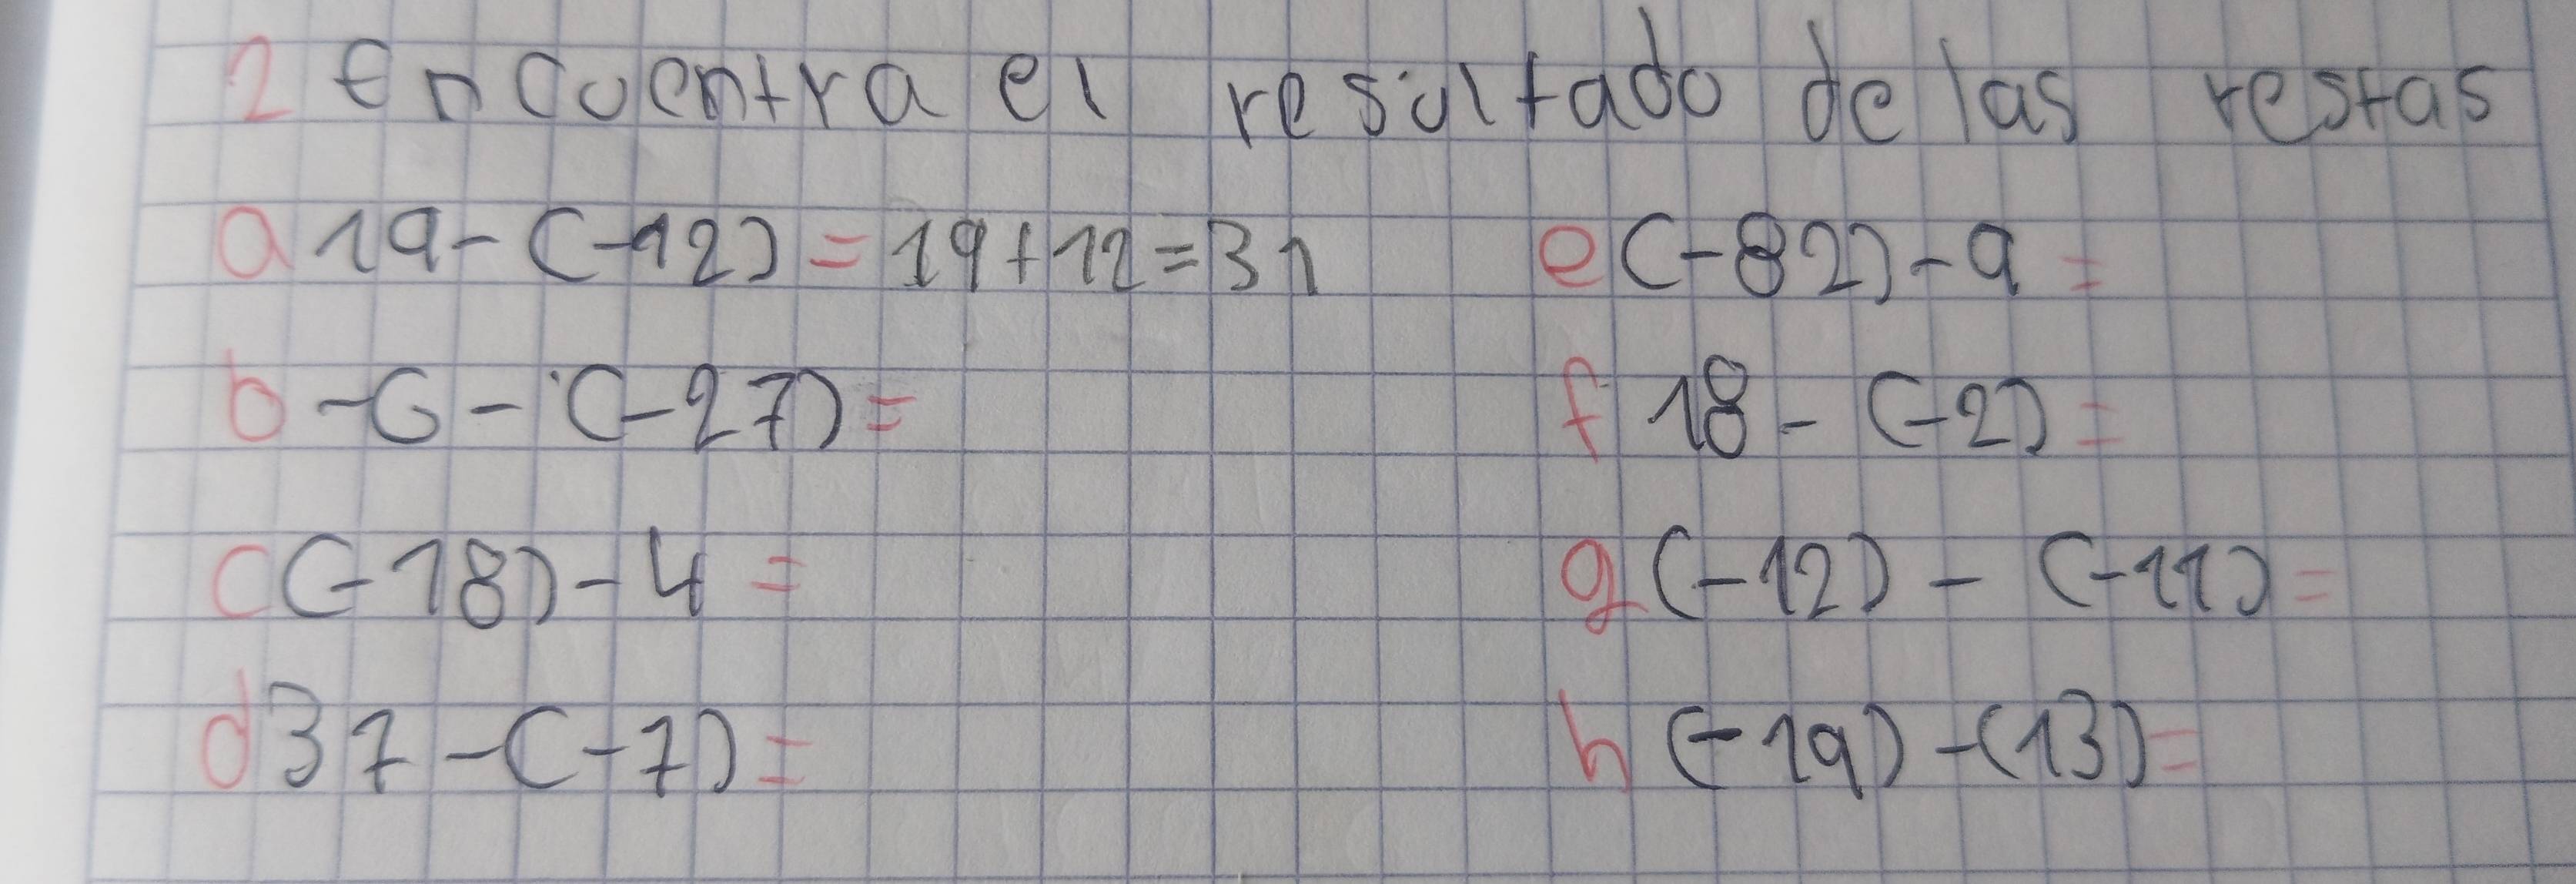 2 Encuentra el resultado de las restas
a 19-(-12)=19+12=31
e (-82)-9=
b -6-(-27)=
f 18-(-2)=
c (-18)-4=
g (-12)-(-11)=
d 37-(-7)=
h (-19)-(13)=